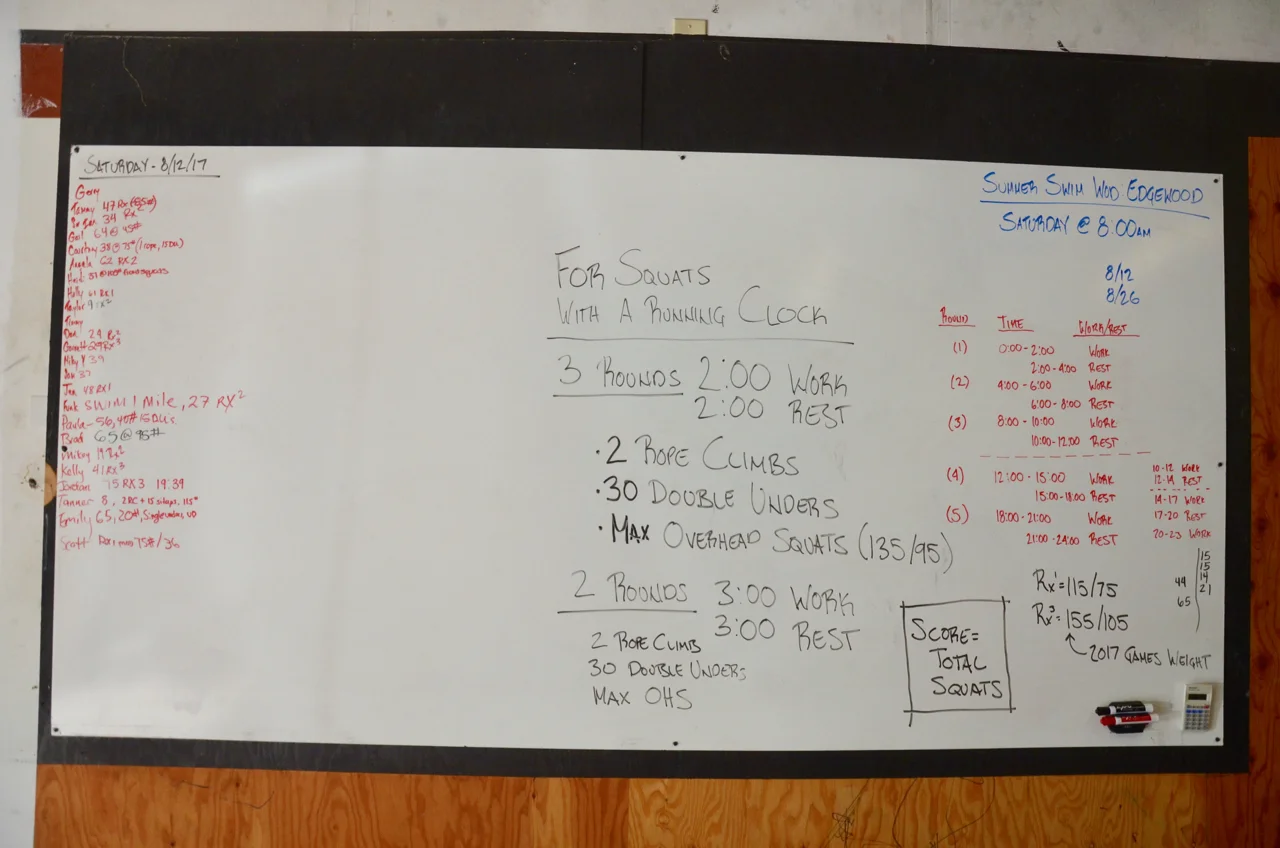 SATURDAY - 8/12/17
Gerry
Tammy 47 RX
34 RX
Gail 64 @ 45#
Courtney 38 @ 75# (1 rope, 15 DU)
Angela 62 RX2
Heidi 37 @
Holly 61 RX1
Taylor 9
Timmy
Dan 29 Rx2
Garrett 29 RX3
Mikey Y 39
Jan 48 RX1
SWIM 1 Mile, 27 RX2
Paula - 56, 40# 15 DU's
Brad 65 @ 95#
Mikey 19 Rx2
Kelly 41 RX3
Jordan 75 RX3 19:39
Tanner 8, 2RC + 15 situps, 115#
Emily 65, 20#, Singleunders,
Scott RX1, 75# / 36
FOR SQUATS
WITH A RUNNING CLOCK
3 ROUNDS 2:00 WORK
2:00 REST
• 2 ROPE CLIMBS
• 30 DOUBLE UNDERS
• MAX OVERHEAD SQUATS (135/95)
2 ROUNDS 3:00 WORK
3:00 REST
2 ROPE CLIMB
30 DOUBLE UNDERS
MAX OHS
SCORE=
TOTAL
SQUATS
SUMMER SWIM WOD EDGEWOOD
SATURDAY @ 8:00AM
8/12
8/26
ROUND TIME WORK/REST
(1) 0:00-2:00 WORK
2:00-4:00 REST
(2) 4:00-6:00 WORK
6:00-8:00 REST
(3) 8:00-10:00 WORK
10:00-12:00 REST
(4) 12:00-15:00 WORK
15:00-18:00 REST
(5) 18:00-21:00 WORK
21:00-24:00 REST
10-12 WORK
12-14 REST
14-17 WORK
17-20 REST
20-23 WORK
15
15
44 14
21
65
Rx1=115/75
Rx3=155/105
2017 GAMES WEIGHT